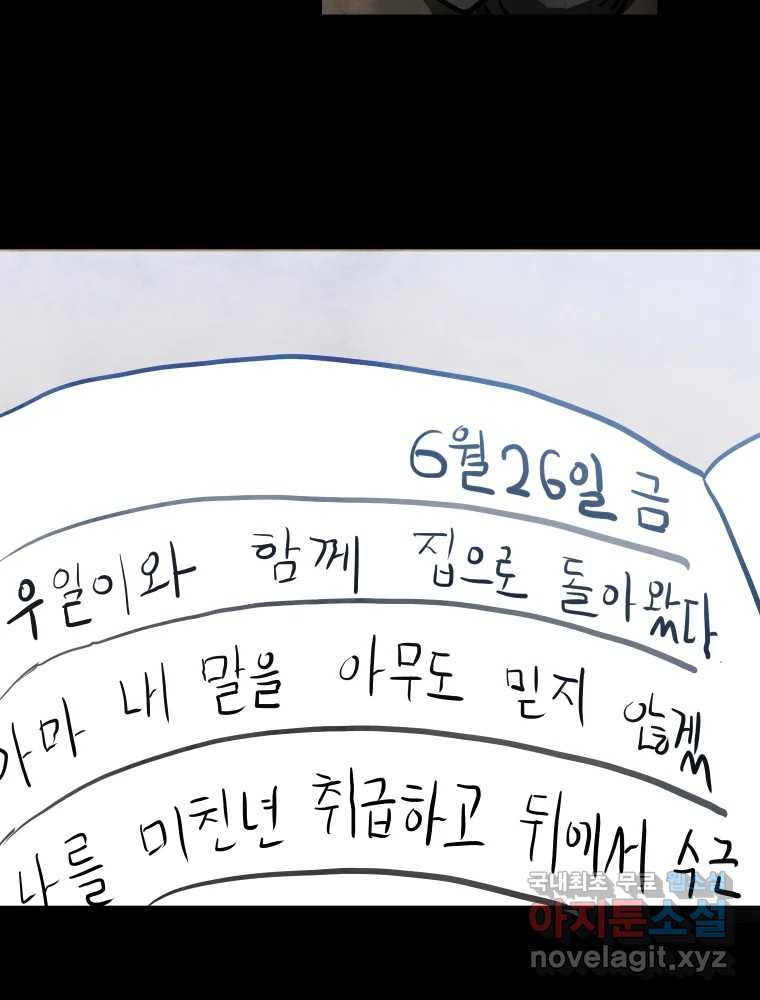 6월 26일 금
우일이와 함께 집으로 돌아왔다
아마 내 말을 아무도 믿지 않겠
나를 미친년 취급하고 뒤에서 수근
국내최초 무료 웹소설
아지툰소설
novelagit.xyz